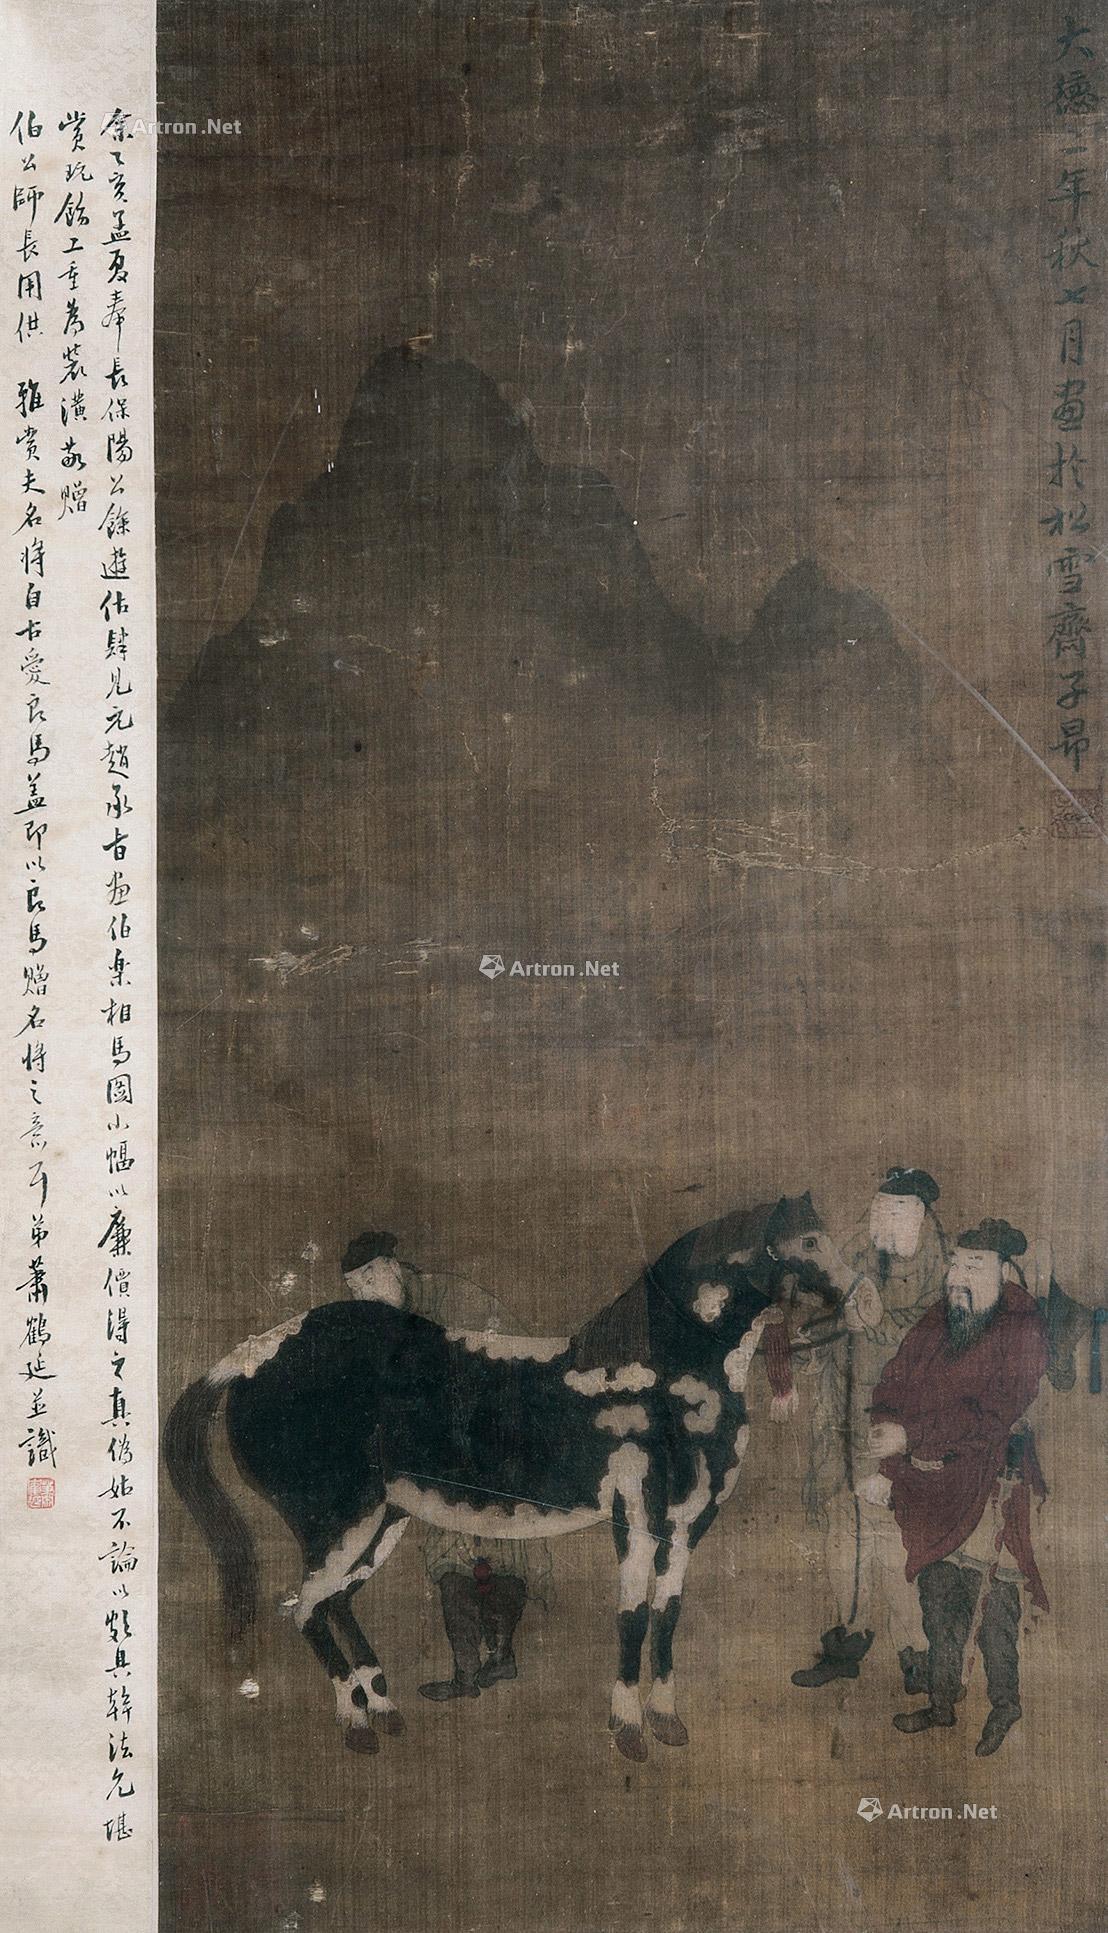 大德二年秋七月画於松雪齋子昂
余乙亥孟夏奉長保陽公餘遊估肆見元趙承旨画伯樂相馬圖小幅以廉價得之真偽姑不論以頗具幹法允堪
賞玩飭工重為裝潢敬贈
伯公師長用供 雅賞夫名將自古愛良馬盖即以良馬贈名將之意耳弟蕭鶴延並識
Artron.Net
Artron.Net
Artron.Net